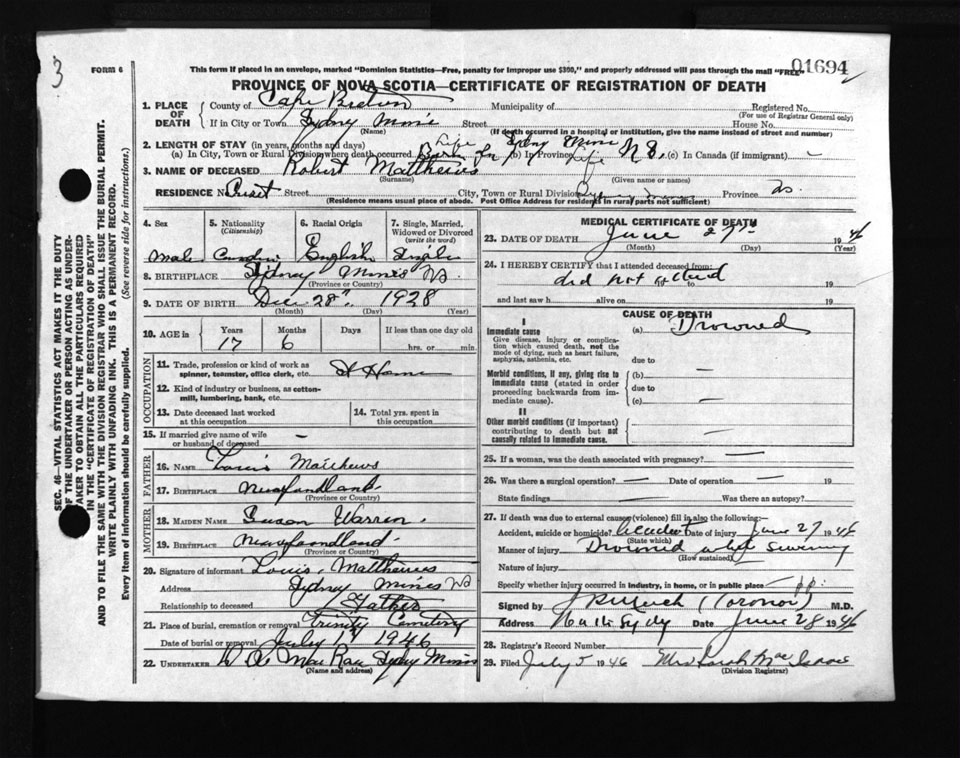 3
FORM 6
This form if placed in an envelope, marked "Dominion Statistics—Free, penalty for improper use $300," and properly addressed will pass through the mail "FREE"
01694
PROVINCE OF NOVA SCOTIA—CERTIFICATE OF REGISTRATION OF DEATH
1. PLACE OF DEATH
County of Cape Breton Municipality of Registered No.
(For use of Registrar General only)
If in City or Town Sydney Mines Street House No.
(Name) (If death occurred in a hospital or institution, give the name instead of street and number)
2. LENGTH OF STAY (in years, months and days) Life Sydney Mines
(a) In City, Town or Rural Division where death occurred (b) In Province Life N.S. (c) In Canada (if immigrant) —
3. NAME OF DECEASED Robert Matthews
(Surname) (Given name or names)
RESIDENCE No. Street City, Town or Rural Division Sydney Mines Province N.S.
(Residence means usual place of abode. Post Office Address for residents in rural parts not sufficient)
4. Sex 5. Nationality (Citizenship) 6. Racial Origin 7. Single, Married, Widowed or Divorced (write the word)
Male Canadian English Single
8. BIRTHPLACE Sydney Mines NS.
(Province or Country)
9. DATE OF BIRTH Dec. 28th 1928
(Month) (Day) (Year)
10. AGE in Years Months Days If less than one day old
17 6 hrs. or min.
OCCUPATION
11. Trade, profession or kind of work as spinner, teamster, office clerk, etc. At Home
12. Kind of industry or business, as cotton-mill, lumbering, bank, etc.
13. Date deceased last worked at this occupation
14. Total yrs. spent in this occupation
15. If married give name of wife or husband of deceased —
FATHER
16. NAME Louis Matthews
17. BIRTHPLACE Newfoundland.
(Province or Country)
MOTHER
18. MAIDEN NAME Susan Warren.
19. BIRTHPLACE Newfoundland.
(Province or Country)
20. Signature of informant Louis Matthews
Address Sydney Mines NS
Relationship to deceased Father
21. Place of burial, cremation or removal Trinity Cemetery
Date of burial or removal July 1st 1946
22. UNDERTAKER Mac Rae Sydney Mines
(Name and address)
MEDICAL CERTIFICATE OF DEATH
23. DATE OF DEATH June 27th 1946
(Month) (Day) (Year)
24. I HEREBY CERTIFY that I attended deceased from:
did not attend to 19
and last saw h alive on 19
CAUSE OF DEATH
I
Immediate cause (a) Drowned
Give disease, injury or complication which caused death, not the mode of dying, such as heart failure, asphyxia, asthenia, etc.
due to
Morbid conditions, if any, giving rise to immediate cause (stated in order proceeding backwards from immediate cause).
(b) —
due to
(c) —
II
Other morbid conditions (if important) contributing to death but not causally related to immediate cause. —
25. If a woman, was the death associated with pregnancy? —
26. Was there a surgical operation? — Date of operation — 19
State findings Was there an autopsy?
27. If death was due to external causes (violence) fill in also the following:—
Accident, suicide or homicide? Accident Date of injury June 27 1946
(State which)
Manner of injury Drowned while swimming
(How sustained)
Nature of injury
Specify whether injury occurred in industry, in home, or in public place — pp.
Signed by (Coronor) M.D.
Address North Sydney Date June 28 1946
28. Registrar's Record Number
29. Filed July 5 1946 Mrs Sarah Mac Isaac
(Division Registrar)
SEC. 46—VITAL STATISTICS ACT MAKES IT THE DUTY
OF THE UNDERTAKER OR PERSON ACTING AS UNDER-
TAKER TO OBTAIN ALL THE PARTICULARS REQUIRED
IN THE "CERTIFICATE OF REGISTRATION OF DEATH"
AND TO FILE THE SAME WITH THE DIVISION REGISTRAR WHO SHALL ISSUE THE BURIAL PERMIT.
WRITE PLAINLY WITH UNFADING INK. THIS IS A PERMANENT RECORD.
Every item of information should be carefully supplied. (See reverse side for instructions.)